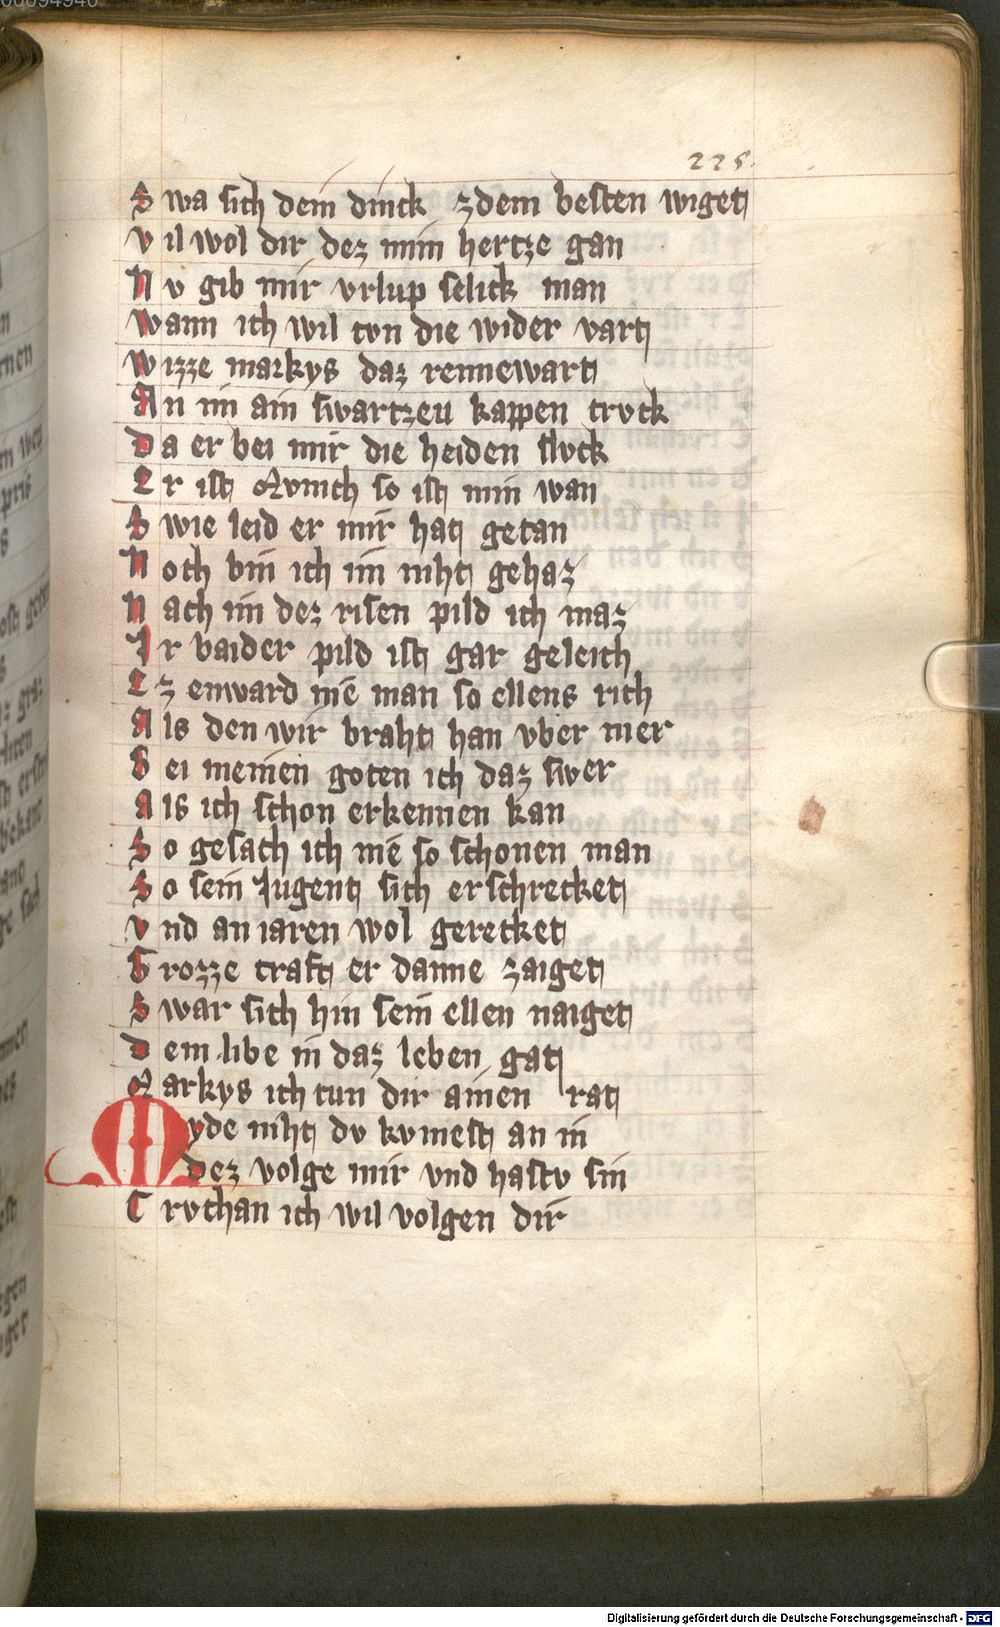 225.
Swa sich dein dinck zdem besten wiget
Vil wol dir dez min hertze gan
Nv gib mir vrlup selick man
Wann ich wil ton die wider vart
Wizze markys daz rennewart
An im ain swartzeu kappen trvck
Da er bei mir die heiden slvck
Er ist Mvnich so ist min wan
Swie leid er mir hat getan
Noch bin ich im niht gehaz
Nach im dez risen pild ich maz
Ir baider pild ist gar geleich
Ez enward mē man so ellens rich
Als den wir braht han vber mer
Bei meinen goten ich daz swer
Als ich schon erkennen kan
So gesach ich mē so schonen man
So sein Jugent sich erschrecket
Vnd an iaren wol gerecket
Grozze craft er danne zaiget
Swar sich hin sein ellen naiget
Dem libe in daz leben gat
Markys ich tun dir ainen rat
Myde niht dv kvmest an in
dez volge mir vnd hastv sin
Tevchan ich wil volgen dir
Digitalisierung gefördert durch die Deutsche Forschungsgemeinschaft - DFG